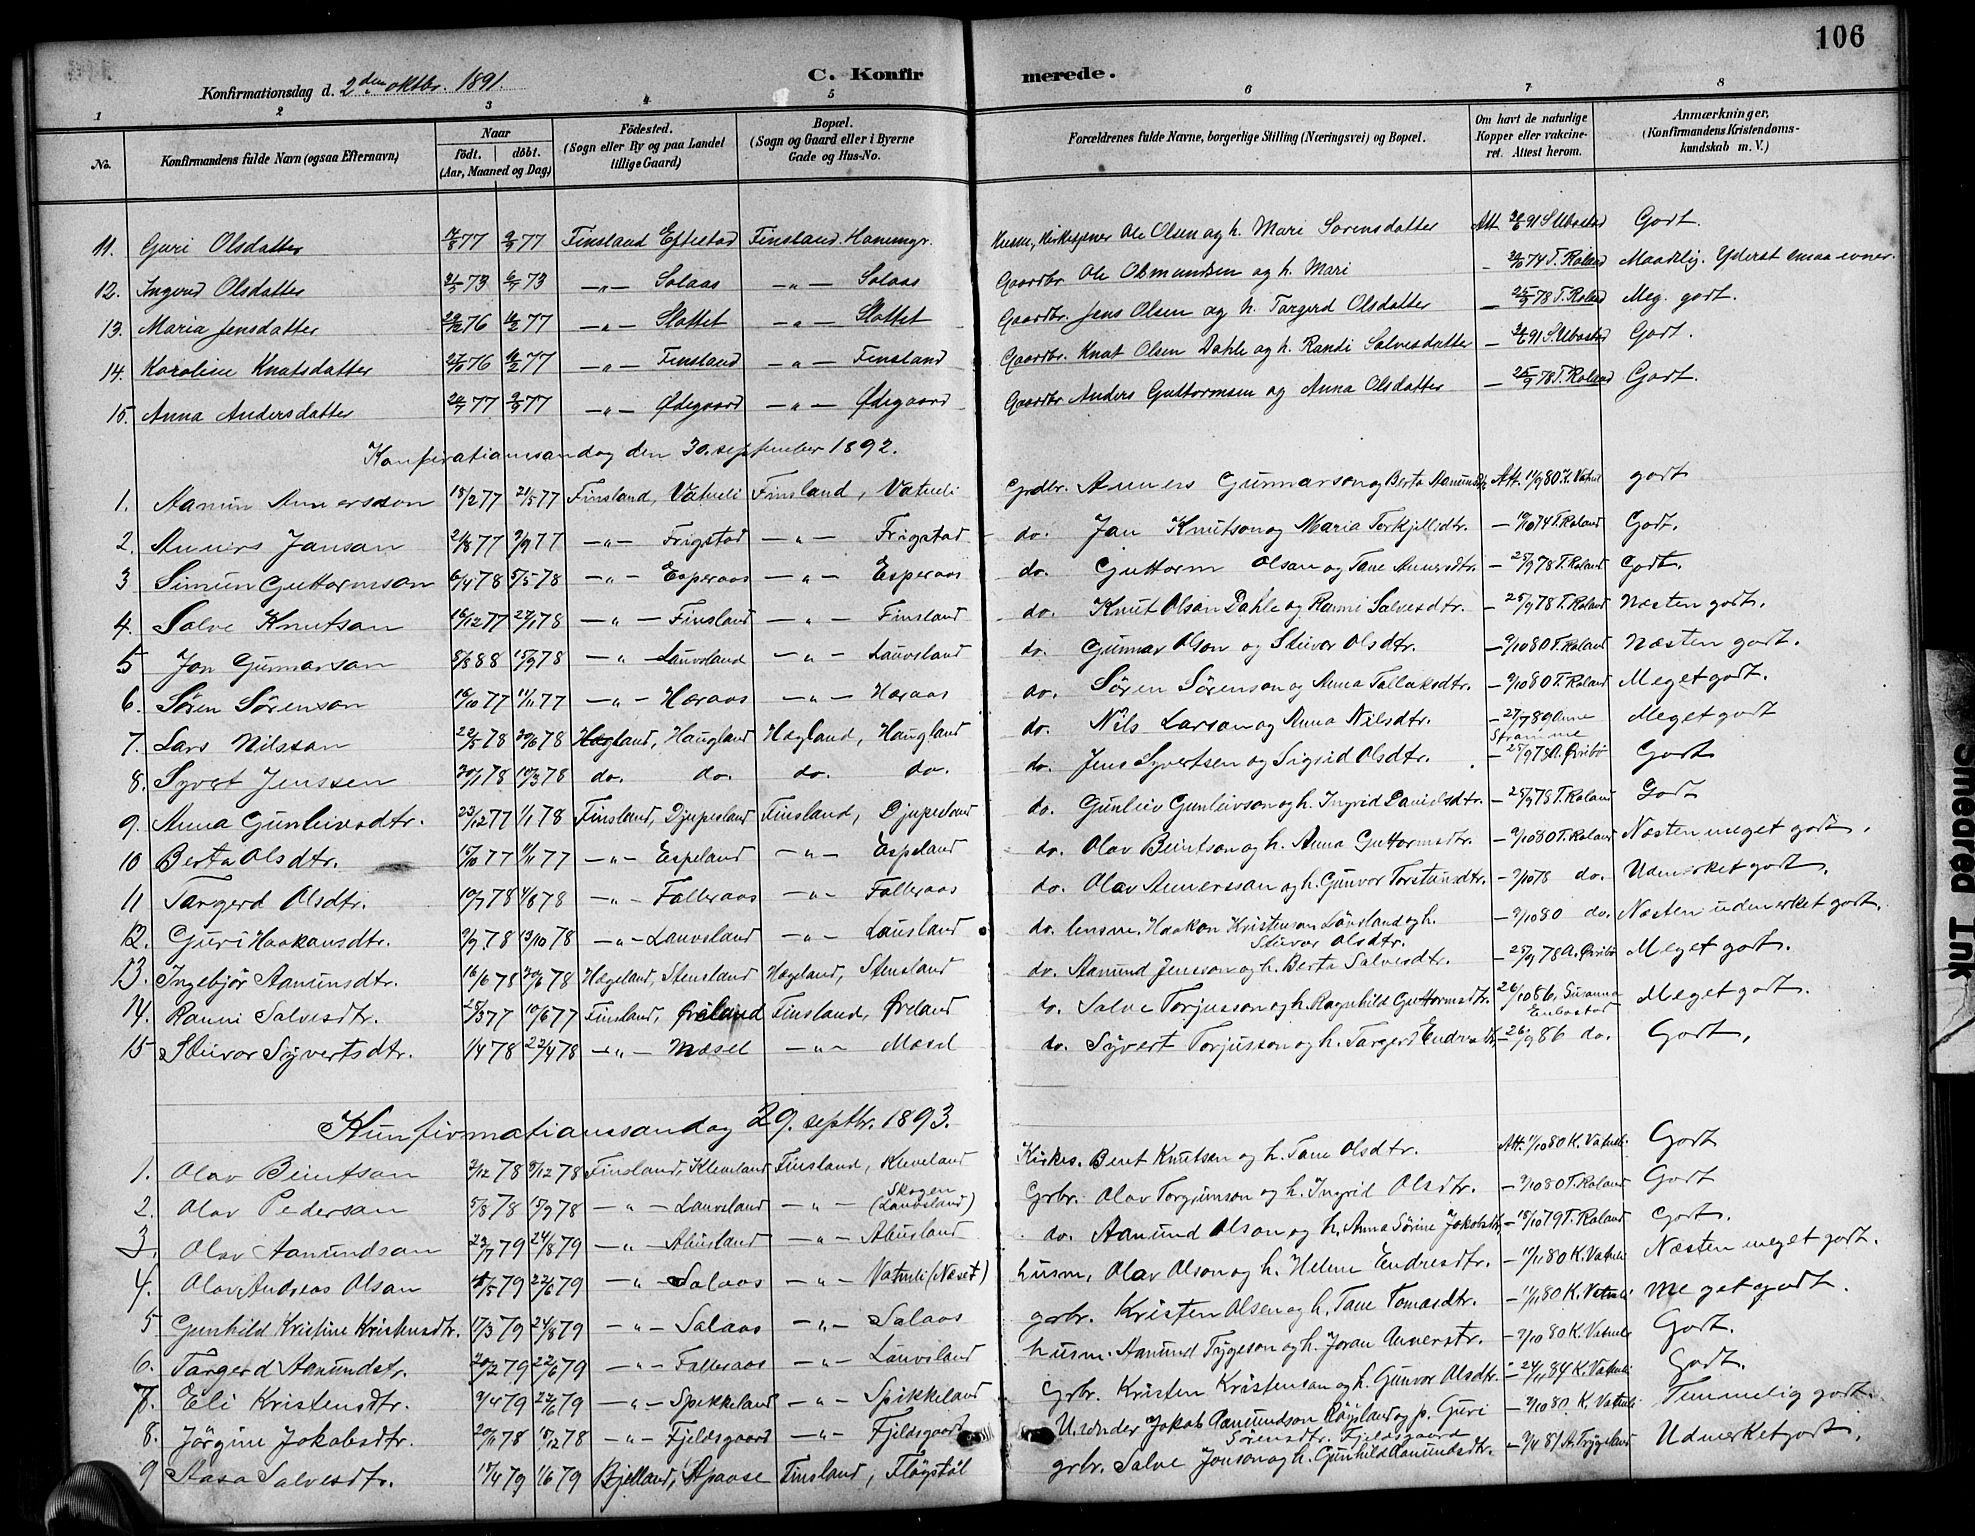 106
Konfirmationsdag d. 2den oktbr. 1891.
C. Konfirmerede.
1 2 3 4 5 6 7 8
No. Konfirmandens fulde Navn (ogsaa Efternavn) Naar født. døbt. (Aar, Maaned og Dag) Fødested. (Sogn eller By og paa Landet tillige Gaard) Bopæl. (Sogn og Gaard eller i Byerne Gade og Hus-No. Forældrenes fulde Navne, borgerlige Stilling (Næringsvei) og Bopæl. Om havt de naturlige Kopper eller vakcineret. Attest herom. Anmærkninger, (Konfirmandens Kristendomskundskab m. V.)
11. Guri Olsdatter 77 77 Finsland Eftestad Finsland Ole Olsen og h. Mari Sørensdatter Att. 91 Godt.
12. Ingerid Olsdatter 73 73 —„— Solaas —„— Solaas Gaardbr. Ole Osmundsen og h. Mari 74 T. Roland Maadelig. Yderst smaa evner.
13. Maria Jensdatter 76 77 —„— Slottet —„— Slottet Gaardbr. Jens Olsen og h. Targerd Olsdatter — 78 T. Roland Meg. godt.
14. Karoline Knutsdatter 76 77 —„— Finsland —„— Finsland Gaardbr. Knut Olsen Dahle og h. Randi Salvesdatter — 91 Godt.
15. Anna Andersdatter 77 77 —„— Ødegaard —„— Ødegaard Gaardbr Anders Guttormsen og Anna Olsdatter — 25/9 78 T. Roland Godt.
den 30. september 1892.
1. 18/2 77 21/5 77 Finsland, Vatneli Finsland, Vatneli Grdbr. Gunnarson og Berta Att. 11/9 80 K. Vatneli godt
2. Jansan 77 77 —„— Frigstad —„— Frigstad do. Jan Knutson og Maria Torkjellsdtr. — 74 T. Roland Godt.
3 Simun Guttormson 6/4 78 5/5 78 —„— Esperaas —„— Esperaas do. Guttorm Olsan og Tane — 25/9 78 T. Roland Godt.
4. Salve Knutsan 16/12 77 27/1 78 —„— Finsland —„— Finsland do. Knut Olson Dahle og Salvesdtr. — 25/9 78 T. Roland Næsten godt.
5 Jon Gunnarsan 88 15/9 78 —„— Lauvsland —„— Lauvsland do. Gunnar Olson og Stuvor Olsdtr. — 9/10 80 T. Roland Næsten godt.
6. Søren Sørenson 16/10 77 11/11 77 —„— Hæraas —„— Hæraas do. Søren Sørenson og Anna Tallaksdtr. — 9/10 80 T. Roland Meget godt.
7. Lars Nilssan 22/5 78 30/6 78 Hægland, Haugland Hægland, Haugland do. Nils Larson og Anna Nilsdtr. — 27/7 89 Anne Strømme Meget godt
8. Syvert Jenssen 30/1 78 10/3 78 do. do. do. do. do. Jens Syvertsen og Sigrid Olsdtr. — 25/9 78 A. Øvibø Godt
9. Anna Gunleivsdtr. 23/12 77 1/1 78 Finsland, Djupesland Finsland, Djupesland do. Gunleiv Gunleivson og h. Ingrid Danielsdtr. — 25/9 78 T. Roland Godt
10 Berta Olsdtr. 15/10 77 11/11 77 —„— Espeland —„— Espeland do. Olav Beintson og h. Anna Guttormsdtr. — 9/10 80 T. Roland Næsten meget godt.
11 Targerd Olsdtr. 10/7 78 4/8 78 —„— Falleraas —„— Falleraas do. Olav og h. Gunvor Torstinsdtr. — 9/10 78 do. Udmerket godt.
12. Guri Haakansdtr. 9/9 78 13/10 78 —„— Lauvsland —„— Lausland do. lensm. Haakon Kristenson Lauvsland og h. Stuvor Olsdtr. — 9/10 80 do. Næsten udmerket godt.
13. Ingebjør Aamunsdtr. 16/6 78 30/6 78 Hægeland, Stensland Hægeland, Stensland do. Aanund Jensson og h. Berta Salvesdtr. — 25/9 78 A. Øvibø Meget godt.
14. Ranni Salvesdtr. 25/3 77 10/6 77 Finsland, Øreland Finsland, Øreland do. Salve Torjusson og h. Ragnhild Guttormsdtr. 26/10 86, Susanna Meget godt.
15 Stuvor Syvertsdtr. 1/4 78 22/4 78 —„— Mæsel —„— Mæsel do. Syvert Torjusson og h. Targerd Endresdtr. — 26/9 86 do. Godt.
Kunfirmationssandag 29. septbr. 1893.
1. Olav Beintsan 3/12 78 8/12 78 Finsland, Kleveland Finsland, Kleveland Kirkes. Bent Knutsen og h. Tane Olsdtr. Att. 9/10 80 K. Vatneli. Godt
2. Olav Pedersan 5/8 78 15/9 78 —„— Lauvsland —„— Skogen (Lauvsland) Grbr. Olav Torgrimson og h. Ingrid Olsdtr. — 9/10 80 T. Roland Godt
3. Olav Aanundsan 22/7 79 24/8 79 —„— Abusland —„— Abusland do. Aanund Olson og h. Anna Sørine Jakobsdtr. — 18/10 79 T. Roland Godt.
4. Olav Andreas Olsan 79 22/6 79 —„— Salaas —„— Vatneli (Næset) husm. Olav Olson og h. Helene Endresdtr. — 11/11 80 K. Vatneli Næsten meget godt.
5 Gunhild Kristine Kristensdtr. 17/3 79 24/8 79 —„— Salaas —„— Salaas grbr. Kristen Olsen og h. Tane Tomasdtr. — 11/11 80 K. Vatneli Meget godt.
6. Targerd Aanundstr. 20/2 79 22/6 79 —„— Falleraas —„— Lauvsland husm. Aanund Tygeson og h. Joran Annerstr. — 9/10 80 K. Vatneli Godt.
7. Eli Kristensdtr. 9/4 79 22/6 79 —„— Spikkeland —„— Spikkeland Grbr. Kristen Kristensan og h. Gunvor Olsdtr. — 24/11 84 K. Vatneli Godt.
8. Jørgine Jokabsdtr. 20/11 78 15/12 78 —„— Fjeldsgaard —„— Fjeldsgaard Jokab Aanundson Røysland og p. Guri Sørensdtr. Fjeldsgaard — 9/10 80 K. Vatneli Temmelig godt.
9 Aasa Salvesdtr. 17/4 79 1/6 79 Bjelland, Apaase Finsland, Fløystøl grbr. Salve Jonson og h. Gunhild Aanundsdtr. — 9/4 81 A. Trygsland Udmerket godt.
Smeared Ink